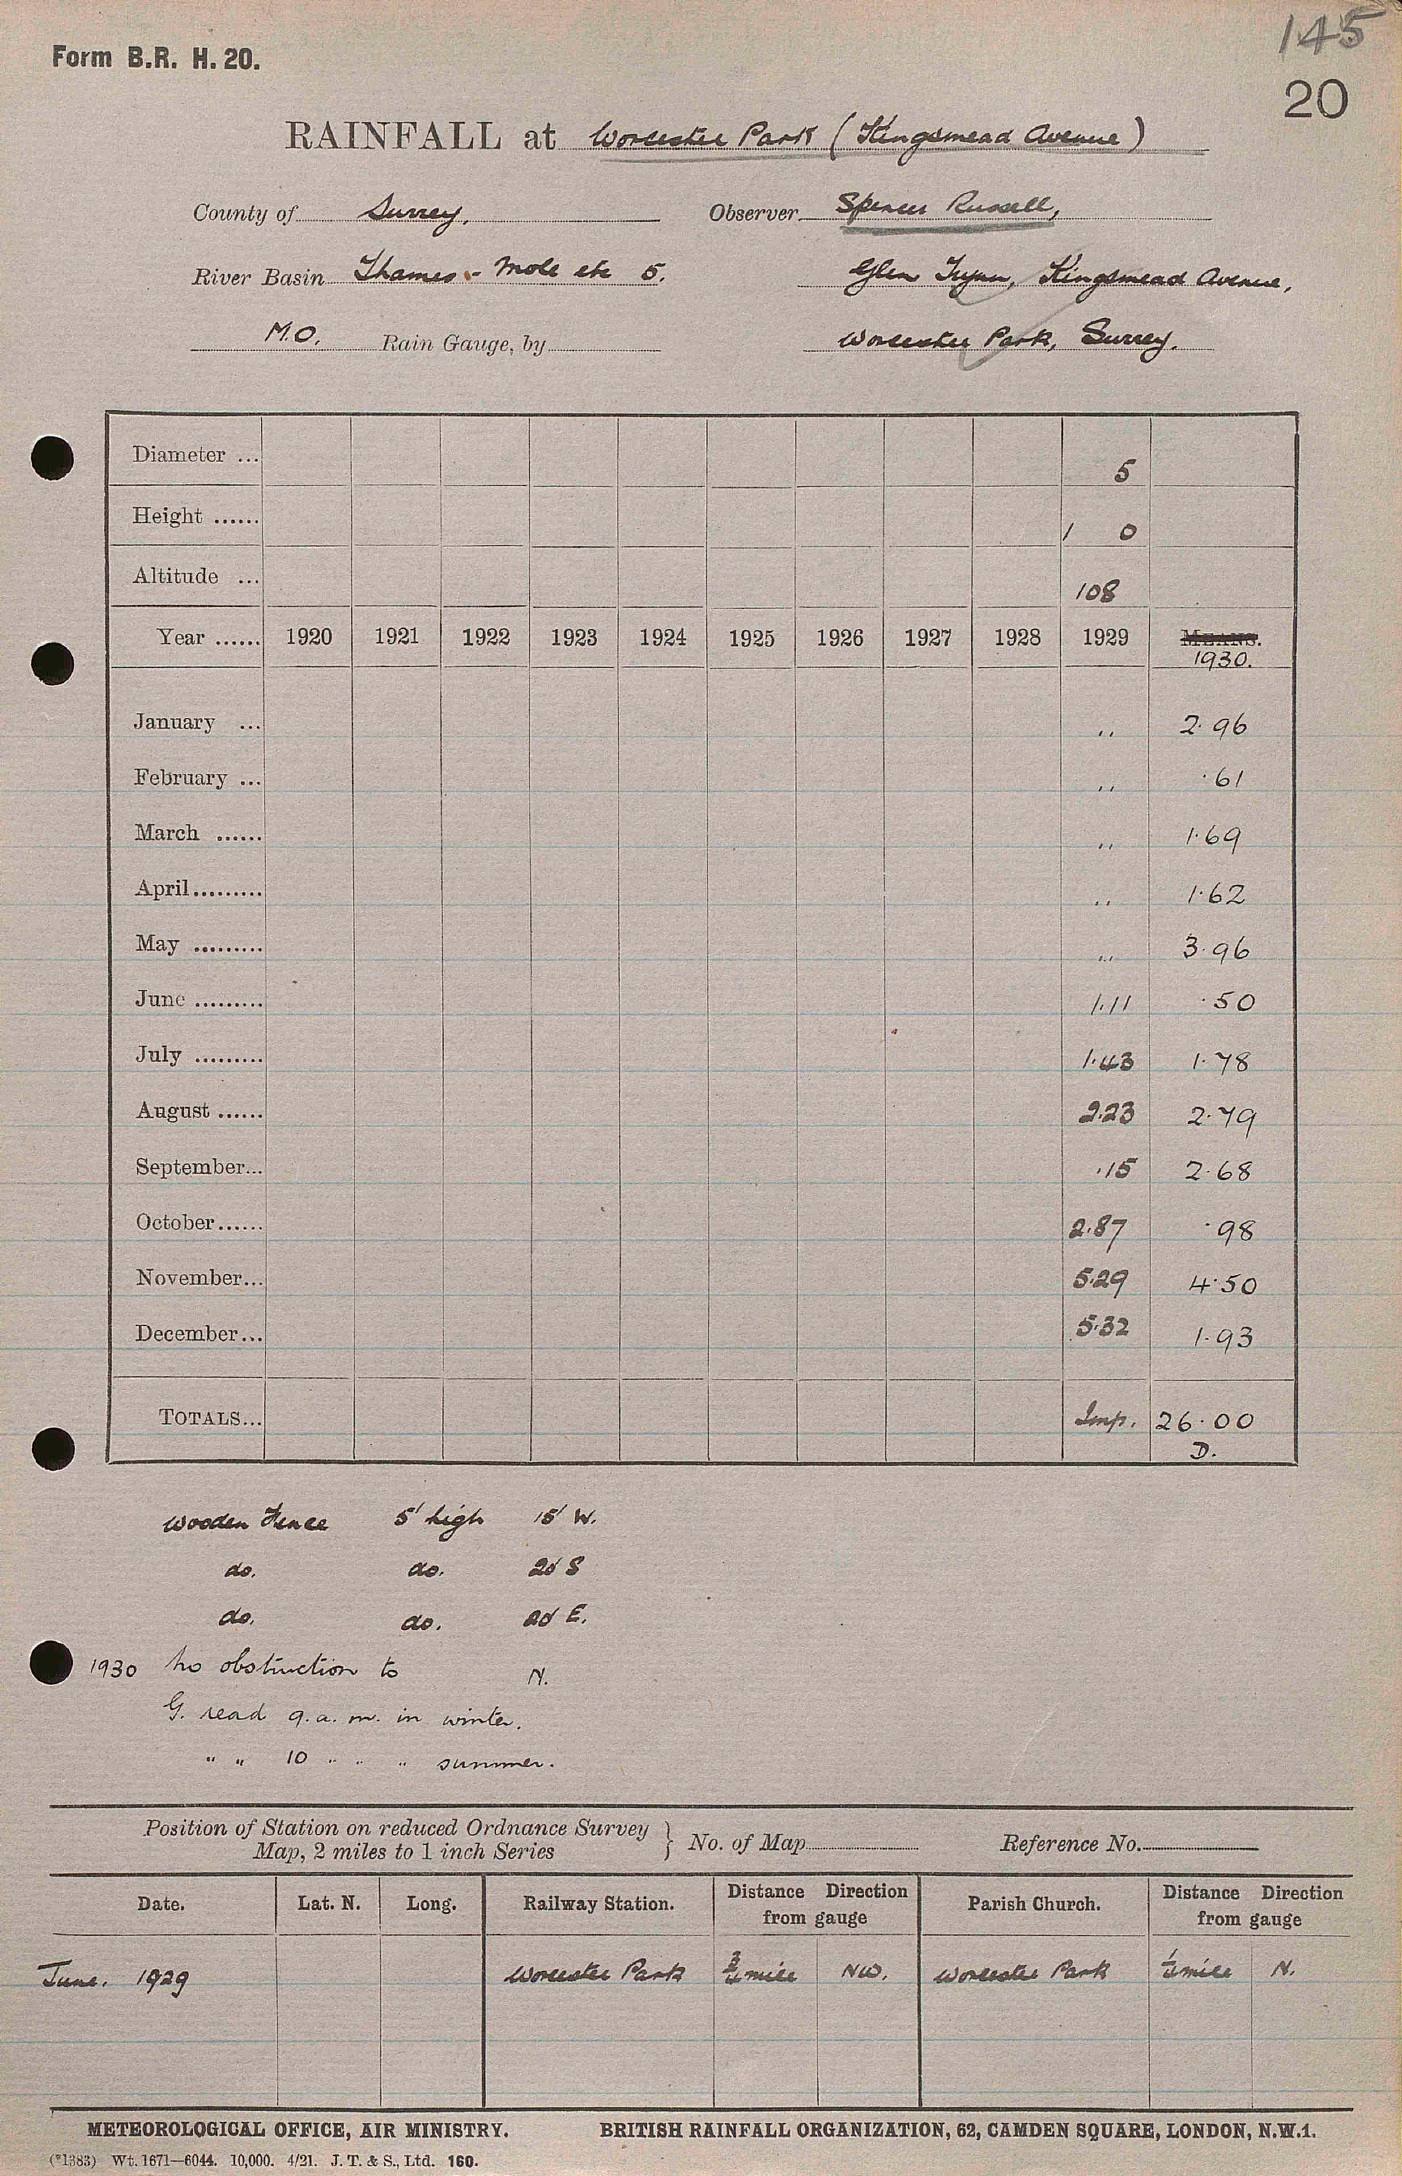 145
Form B.R. H. 20.
20
RAINFALL at Worcester Park (Kingsmead Avenue)
County of Surrey. Observer Spencer Russell,
River Basin Thames - Mole etc 5. Glen Kingsmead Avenue,
M.O. Rain Gauge, by Worcester Park, Surrey.
Diameter ... 5
Height ...... 1 0
Altitude ... 108
Year ...... 1920 1921 1922 1923 1924 1925 1926 1927 1928 1929 MEANS.
1930.
January ... ,, 2.96
February ... ,, .61
March ...... ,, 1.69
April......... ,, 1.62
May ......... ,, 3.96
June ......... 1.11 .50
July ......... 1.43 1.78
August ...... 2.23 2.79
September... .15 2.68
October...... 2.87 .98
November... 5.29 4.50
December... 5.32 1.93
TOTALS... Imp. 26.00
D.
Wooden Fence 5' high 15' W.
do. do. 20' S
do. do. 20' E.
1930 No obstruction to N.
G. read 9.a.m. in winter.
" " 10 " " " summer.
Position of Station on reduced Ordnance Survey
Map, 2 miles to 1 inch Series } No. of Map Reference No.
Date. Lat. N. Long. Railway Station. Distance Direction from gauge Parish Church. Distance Direction from gauge
June. 1929 Worcester Park 3/4 mile NW. Worcester Park 1/4 mile N.
METEOROLOGICAL OFFICE, AIR MINISTRY. BRITISH RAINFALL ORGANIZATION, 62, CAMDEN SQUARE, LONDON, N.W.1.
(*1383) Wt. 1671—6044. 10,000. 4/21. J. T. & S., Ltd. 160.